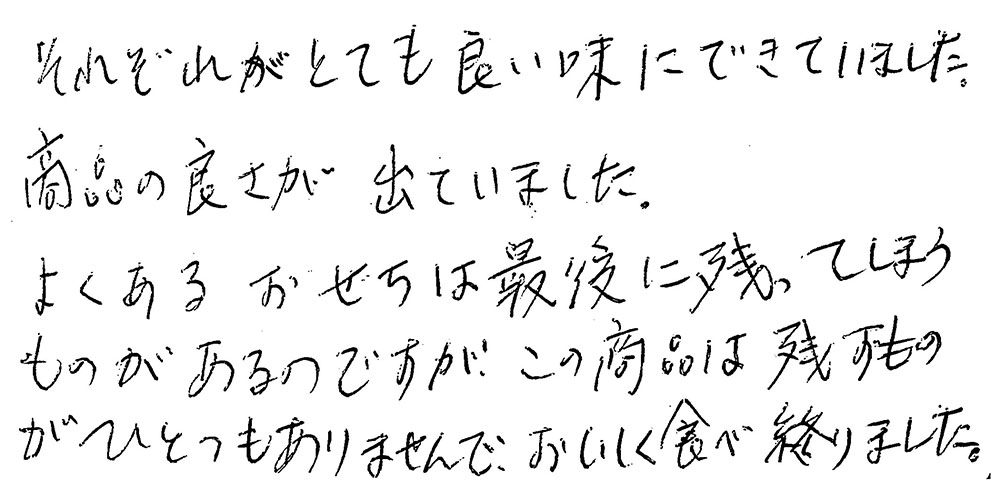 それぞれがとても良い味にできていました。
商品の良さが出ていました。
よくあるおせちは最後に残ってしまう
ものがあるのですが、この商品は残すもの
がひとつもありませんで、おいしく食べ終りました。